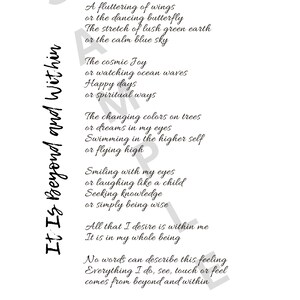 It Is Beyond and Within
A fluttering of wings
or the dancing butterfly
The stretch of lush green earth
or the calm blue sky
The cosmic Joy
or watching ocean waves
Happy days
or spiritual ways
The changing colors on trees
or dreams in my eyes
Swimming in the higher self
or flying high
Smiling with my eyes
or laughing like a child
Seeking knowledge
or simply being wise
All that I desire is within me
It is in my whole being
No words can describe this feeling
Everything I do, see, touch or feel
comes from beyond and within
SAMPLE